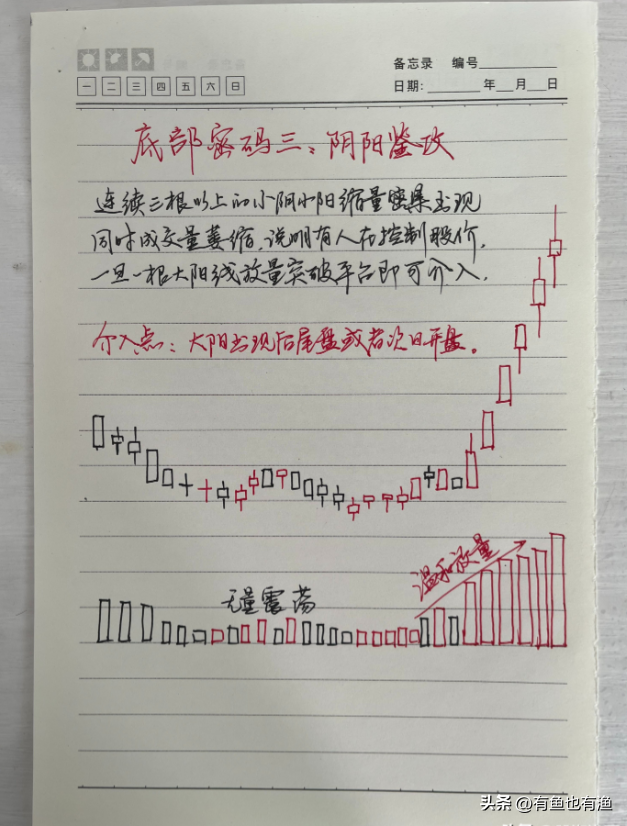 备忘录 编号
一 二 三 四 五 六 日
日期: 年 月 日
底部密码三:阴阳鉴攻
连续三根以上的小阴小阳缩量 出现
同时成交量萎缩,说明有人在控制股价.
一旦一根大阳线放量突破平台即可介入.
介入点:大阳出现后尾盘或者次日开盘.
温和放量
无量震荡
头条 @有鱼也有渔